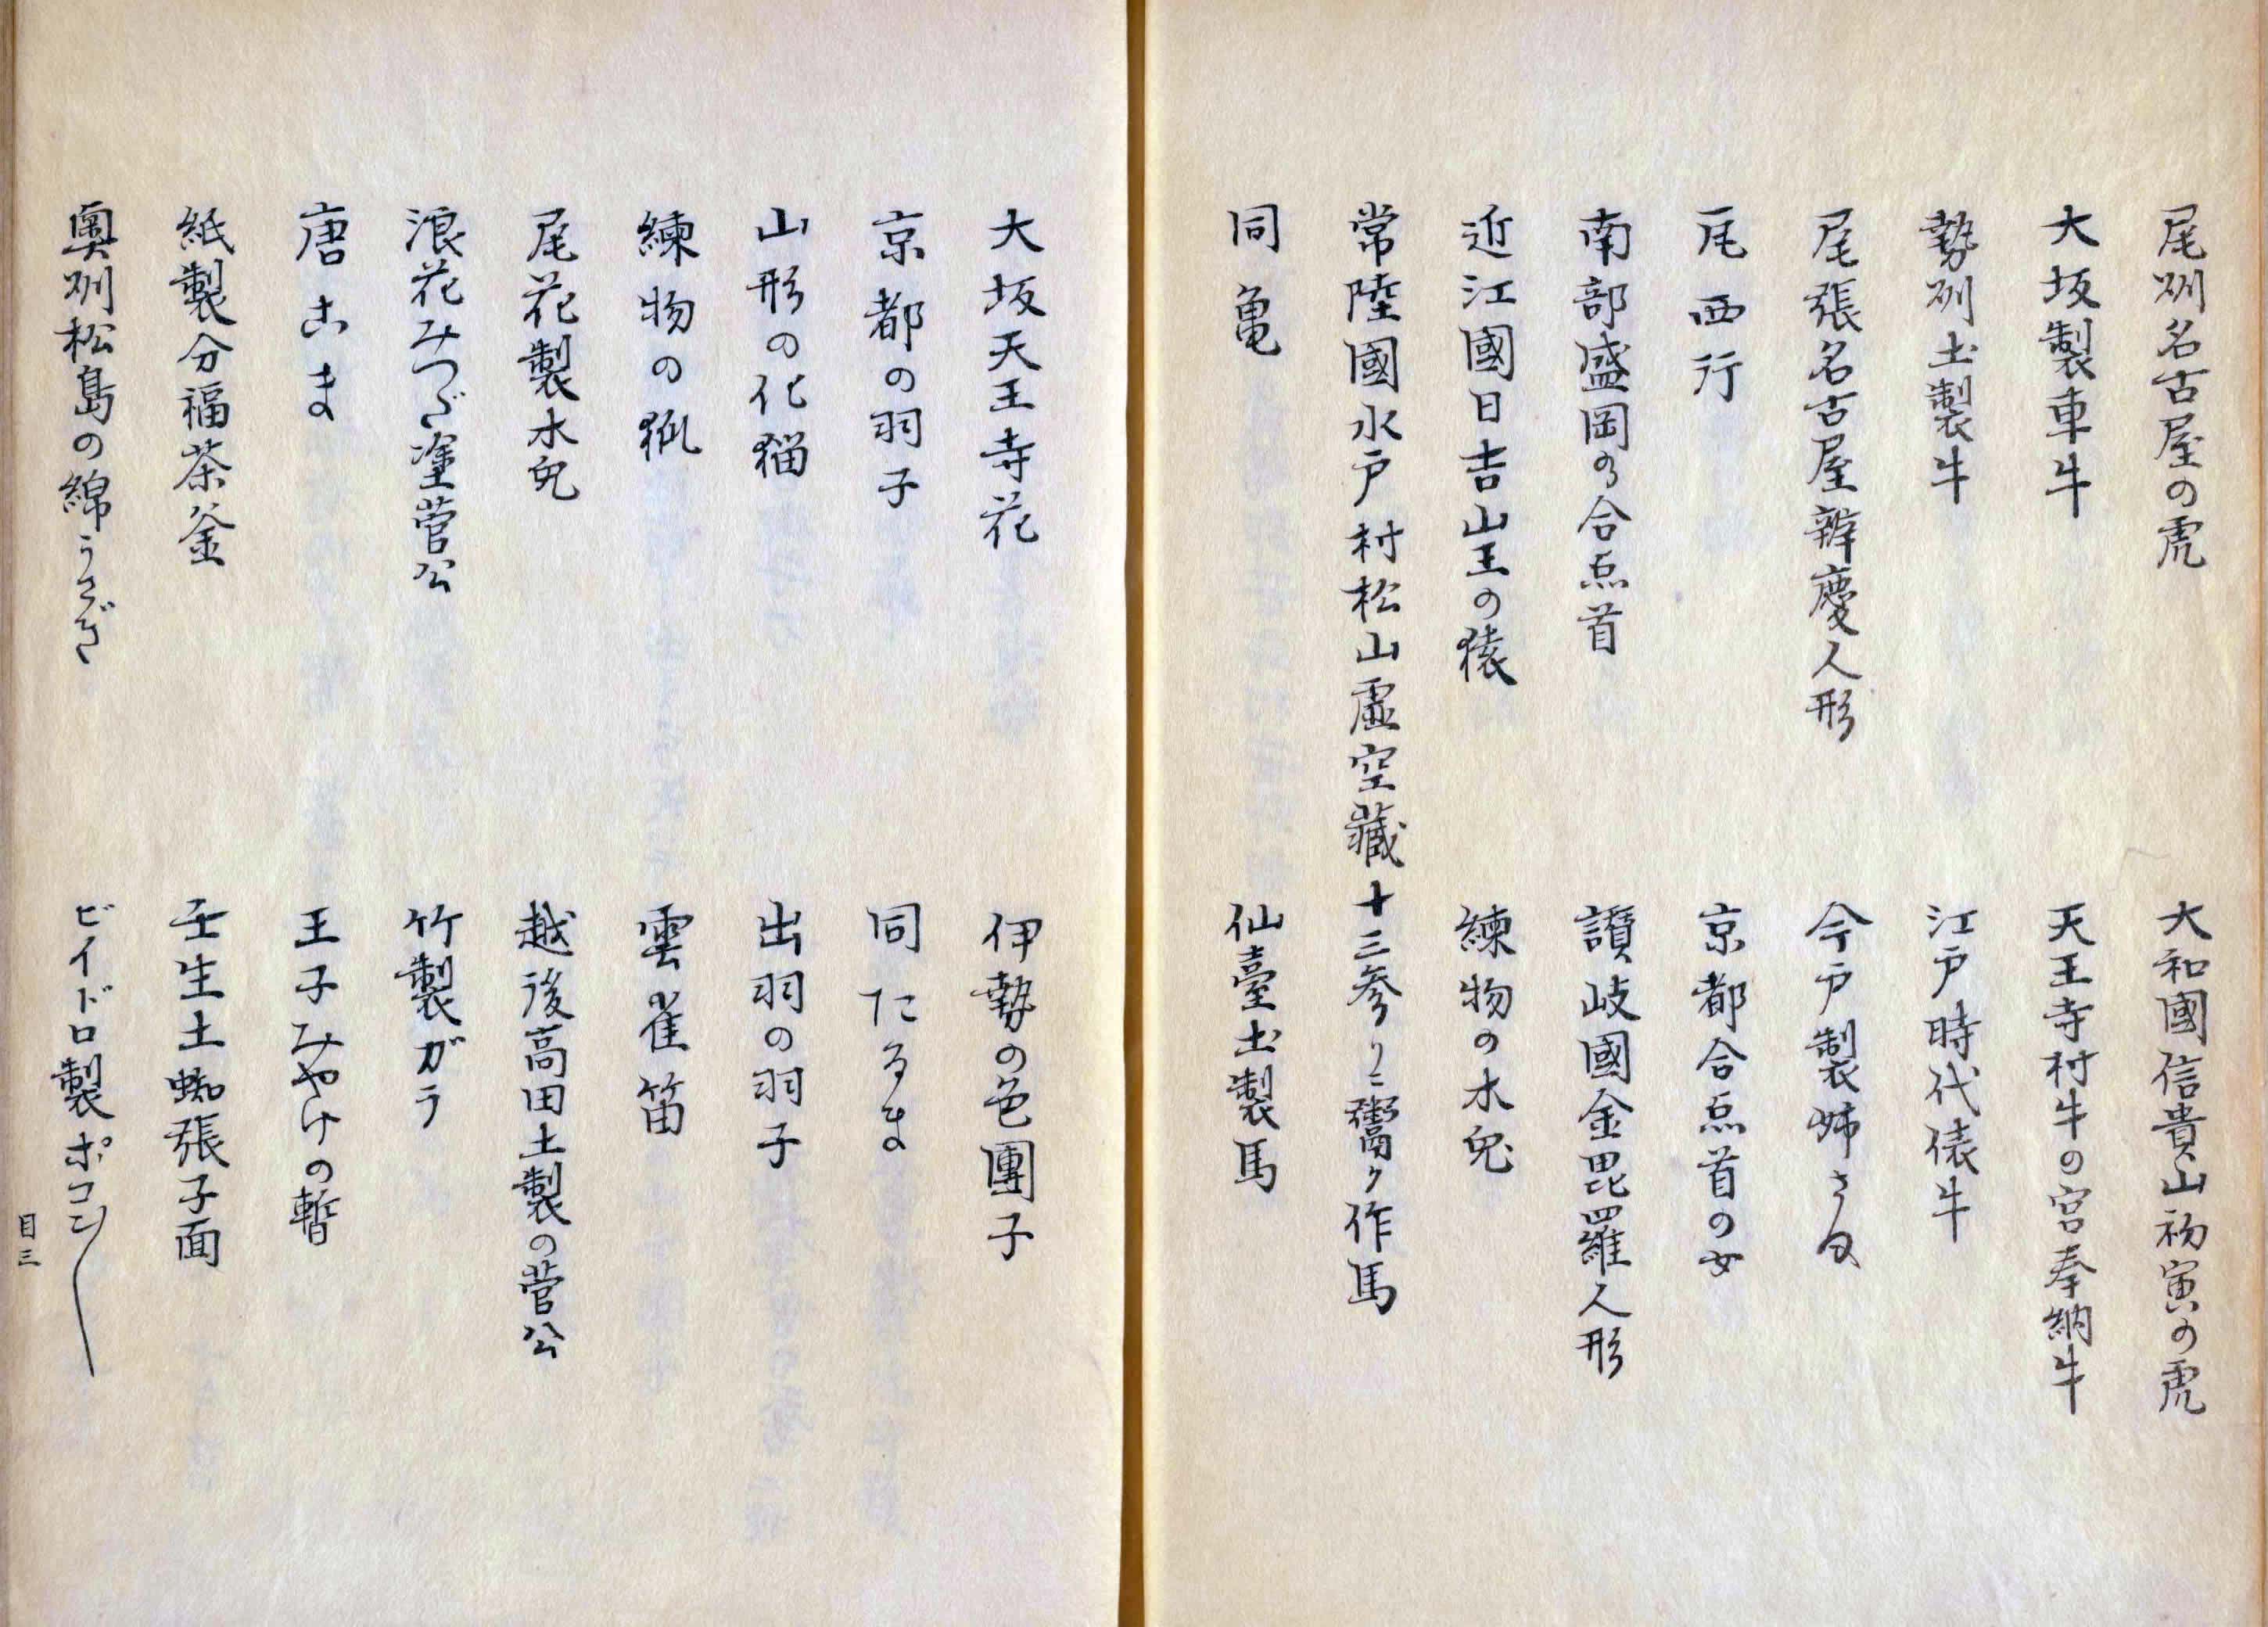 尾州名古屋の虎
大和國信貴山初寅の虎
大坂製車牛
天王寺村牛の宮奉納牛
勢州土製牛
江戸時代俵牛
尾張名古屋辨慶人形
今戸製姉さま
瓦西行
京都合点首の女
南部盛岡の合点首
讃岐國金毘羅人形
近江國日吉山王の猿
練物の木兎
常陸國水戸村松山虚空藏十三参リニ鬻ク作馬
同亀
仙臺土製馬
大坂天王寺花
伊勢の色團子
京都の羽子
同たるま
山形の化猫
出羽の羽子
練物の狐
雲雀笛
尾花製木兎
越後高田土製の菅公
浪花みつだ塗菅公
竹製ガラ
唐こま
王子みやけの暫
紙製分福茶釜
壬生土蜘張子面
奥州松島の綿うさぎ
ビイドロ製ポコン〱
目三